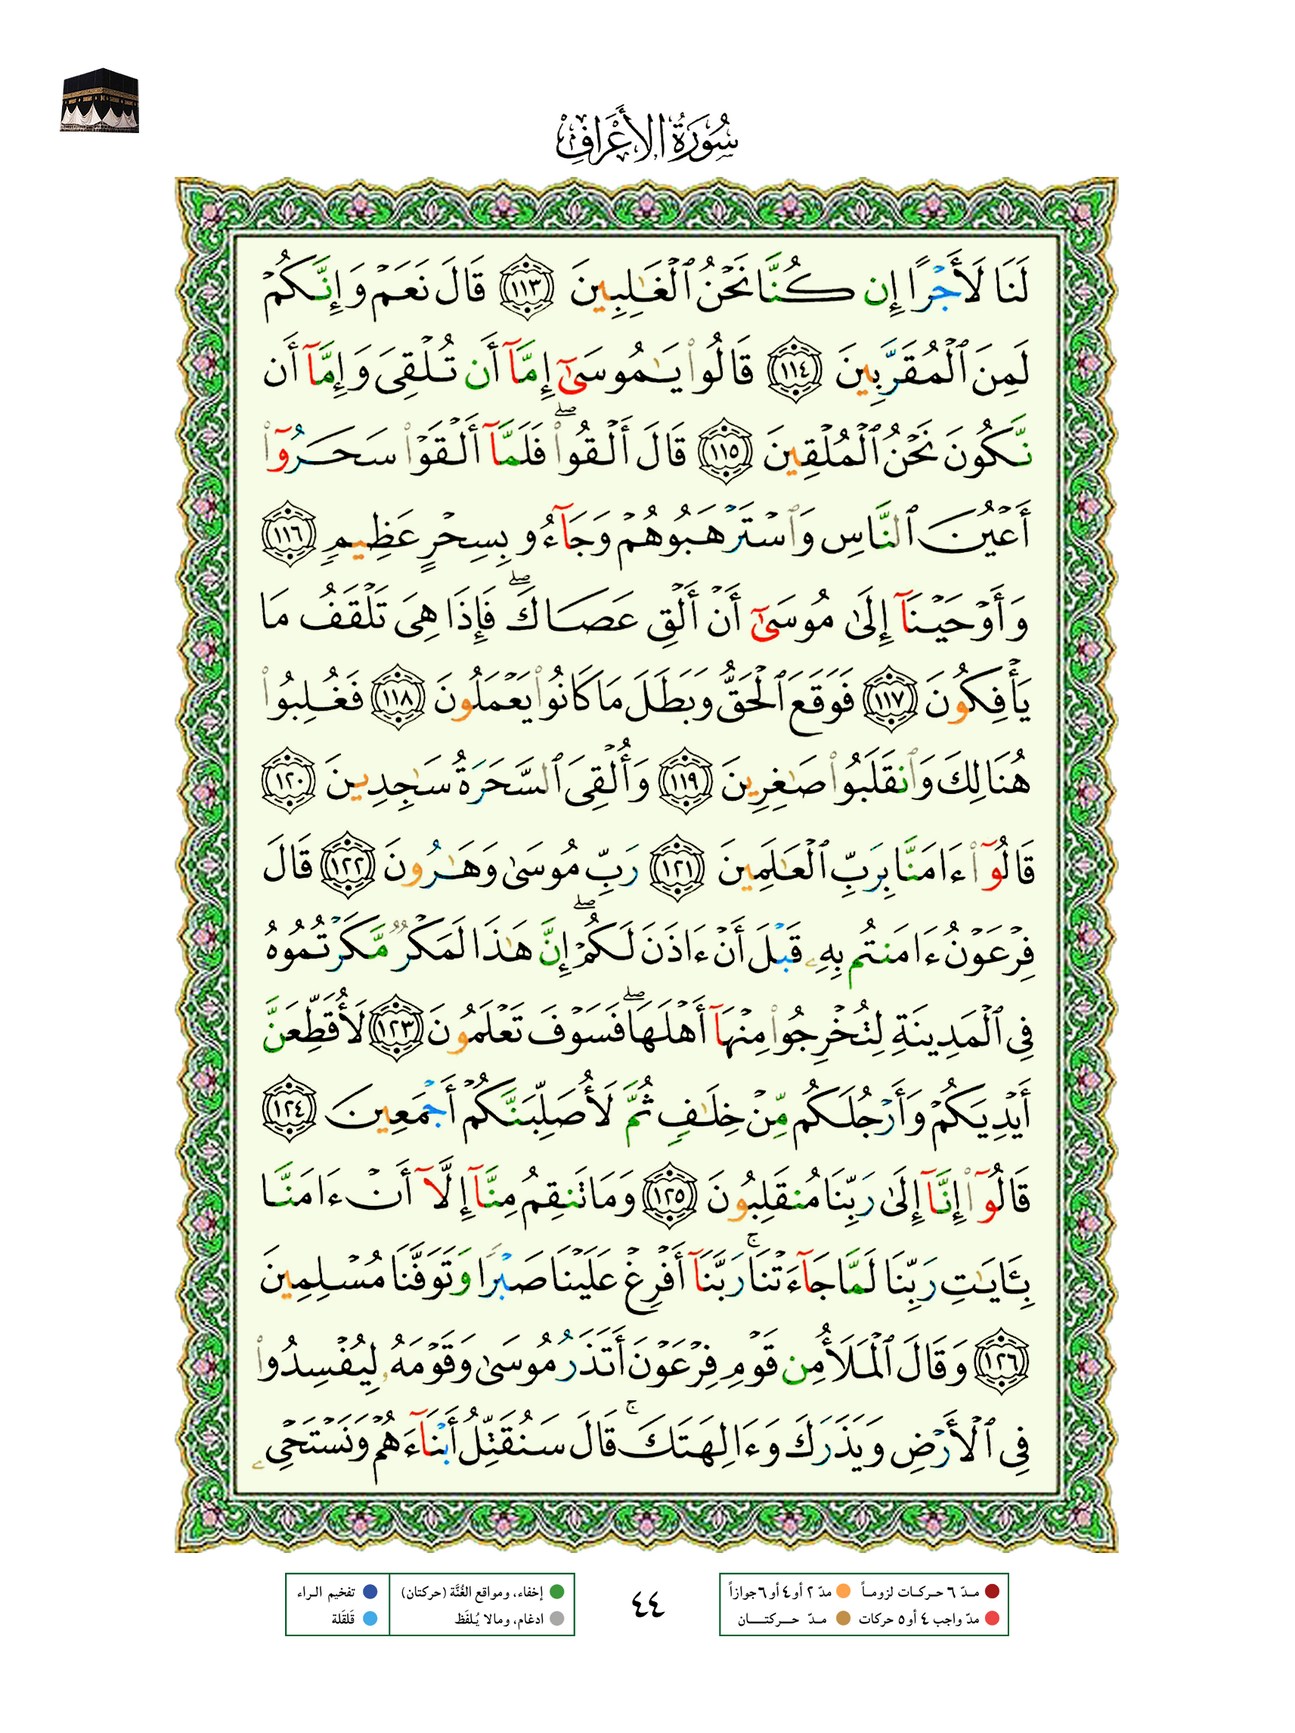 سُورَةُ الأَعْرَافِ
لَنَا لَأَجْرًا إِن كُنَّا نَحْنُ ٱلْغَـٰلِبِينَ ١١٣ قَالَ نَعَمْ وَإِنَّكُمْ
لَمِنَ ٱلْمُقَرَّبِينَ ١١٤ قَالُوا۟ يَـٰمُوسَىٰٓ إِمَّآ أَن تُلْقِىَ وَإِمَّآ أَن
نَّكُونَ نَحْنُ ٱلْمُلْقِينَ ١١٥ قَالَ أَلْقُوا۟ۖ فَلَمَّآ أَلْقَوْا۟ سَحَرُوٓا۟
أَعْيُنَ ٱلنَّاسِ وَٱسْتَرْهَبُوهُمْ وَجَآءُو بِسِحْرٍ عَظِيمٍ ١١٦
وَأَوْحَيْنَآ إِلَىٰ مُوسَىٰٓ أَنْ أَلْقِ عَصَاكَۖ فَإِذَا هِىَ تَلْقَفُ مَا
يَأْفِكُونَ ١١٧ فَوَقَعَ ٱلْحَقُّ وَبَطَلَ مَا كَانُوا۟ يَعْمَلُونَ ١١٨ فَغُلِبُوا۟
هُنَالِكَ وَٱنقَلَبُوا۟ صَـٰغِرِينَ ١١٩ وَأُلْقِىَ ٱلسَّحَرَةُ سَـٰجِدِينَ ١٢٠
قَالُوٓا۟ ءَامَنَّا بِرَبِّ ٱلْعَـٰلَمِينَ ١٢١ رَبِّ مُوسَىٰ وَهَـٰرُونَ ١٢٢ قَالَ
فِرْعَوْنُ ءَامَنتُم بِهِۦ قَبْلَ أَنْ ءَاذَنَ لَكُمْۖ إِنَّ هَـٰذَا لَمَكْرٌ مَّكَرْتُمُوهُ
فِى ٱلْمَدِينَةِ لِتُخْرِجُوا۟ مِنْهَآ أَهْلَهَاۖ فَسَوْفَ تَعْلَمُونَ ١٢٣ لَأُقَطِّعَنَّ
أَيْدِيَكُمْ وَأَرْجُلَكُم مِّنْ خِلَـٰفٍ ثُمَّ لَأُصَلِّبَنَّكُمْ أَجْمَعِينَ ١٢٤
قَالُوٓا۟ إِنَّآ إِلَىٰ رَبِّنَا مُنقَلِبُونَ ١٢٥ وَمَا تَنقِمُ مِنَّآ إِلَّآ أَنْ ءَامَنَّا
بِـَٔايَـٰتِ رَبِّنَا لَمَّا جَآءَتْنَاۚ رَبَّنَآ أَفْرِغْ عَلَيْنَا صَبْرًا وَتَوَفَّنَا مُسْلِمِينَ
١٢٦ وَقَالَ ٱلْمَلَأُ مِن قَوْمِ فِرْعَوْنَ أَتَذَرُ مُوسَىٰ وَقَوْمَهُۥ لِيُفْسِدُوا۟
فِى ٱلْأَرْضِ وَيَذَرَكَ وَءَالِهَتَكَۚ قَالَ سَنُقَتِّلُ أَبْنَآءَهُمْ وَنَسْتَحْىِۦ
مدّ ٦ حركات لزوماً مدّ ٢ أو ٤ أو ٦ جوازاً
مدّ واجب ٤ أو ٥ حركات مدّ حركتان
٤٤
إخفاء، ومواقع الغُنَّة (حركتان) تفخيم الراء
ادغام، ومالا يُلفَظ قَلقَلة